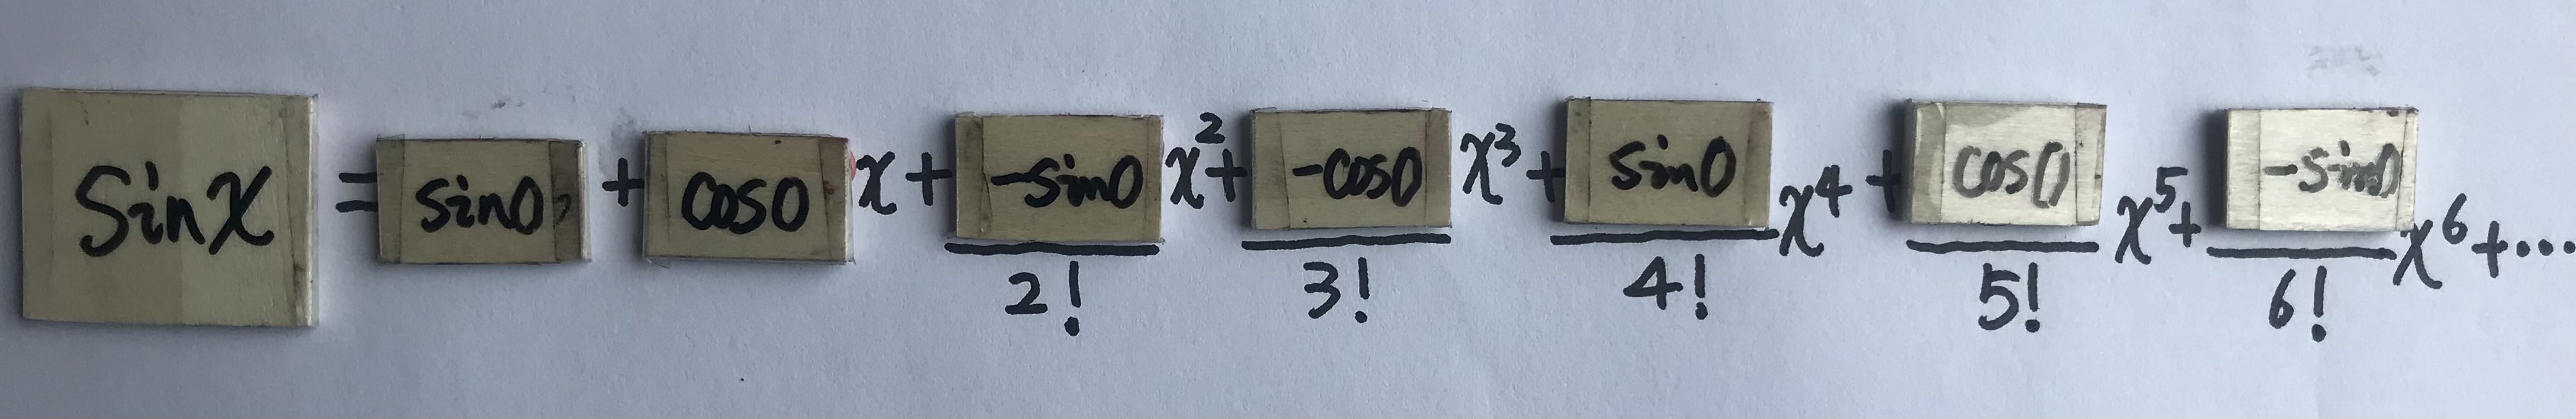 sinx = sin0 + cos0 x + -sin0/2! x² + -cos0/3! x³ + sin0/4! x⁴ + cos0/5! x⁵ + -sin0/6! x⁶ + ...